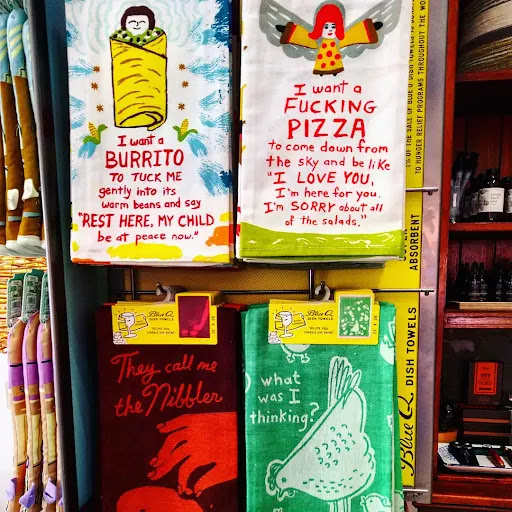 I want a
BURRITO
TO TUCK ME
gently into its
warm beans and say
"REST HERE, MY CHILD
be at peace now."
I want a
FUCKING
PIZZA
to come down from
the sky and be like
"I LOVE YOU,
I'm here for you.
I'm SORRY about all
of the salads."
Blue Q
DISH TOWELS
Blue Q
DISH TOWELS
They call me
the Nibbler
what
was I
thinking?
TO HUNGER RELIEF PROGRAMS THROUGHOUT THE WO
ABSORBENT
Blue Q DISH TOWELS